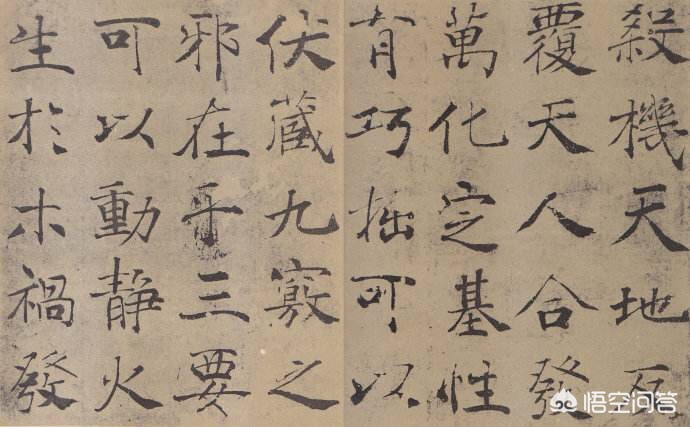 殺機天地反
覆天人合發
萬化定基性
有巧拙可以
伏藏九竅之
邪在乎三要
可以動靜火
生於木禍發
悟空问答